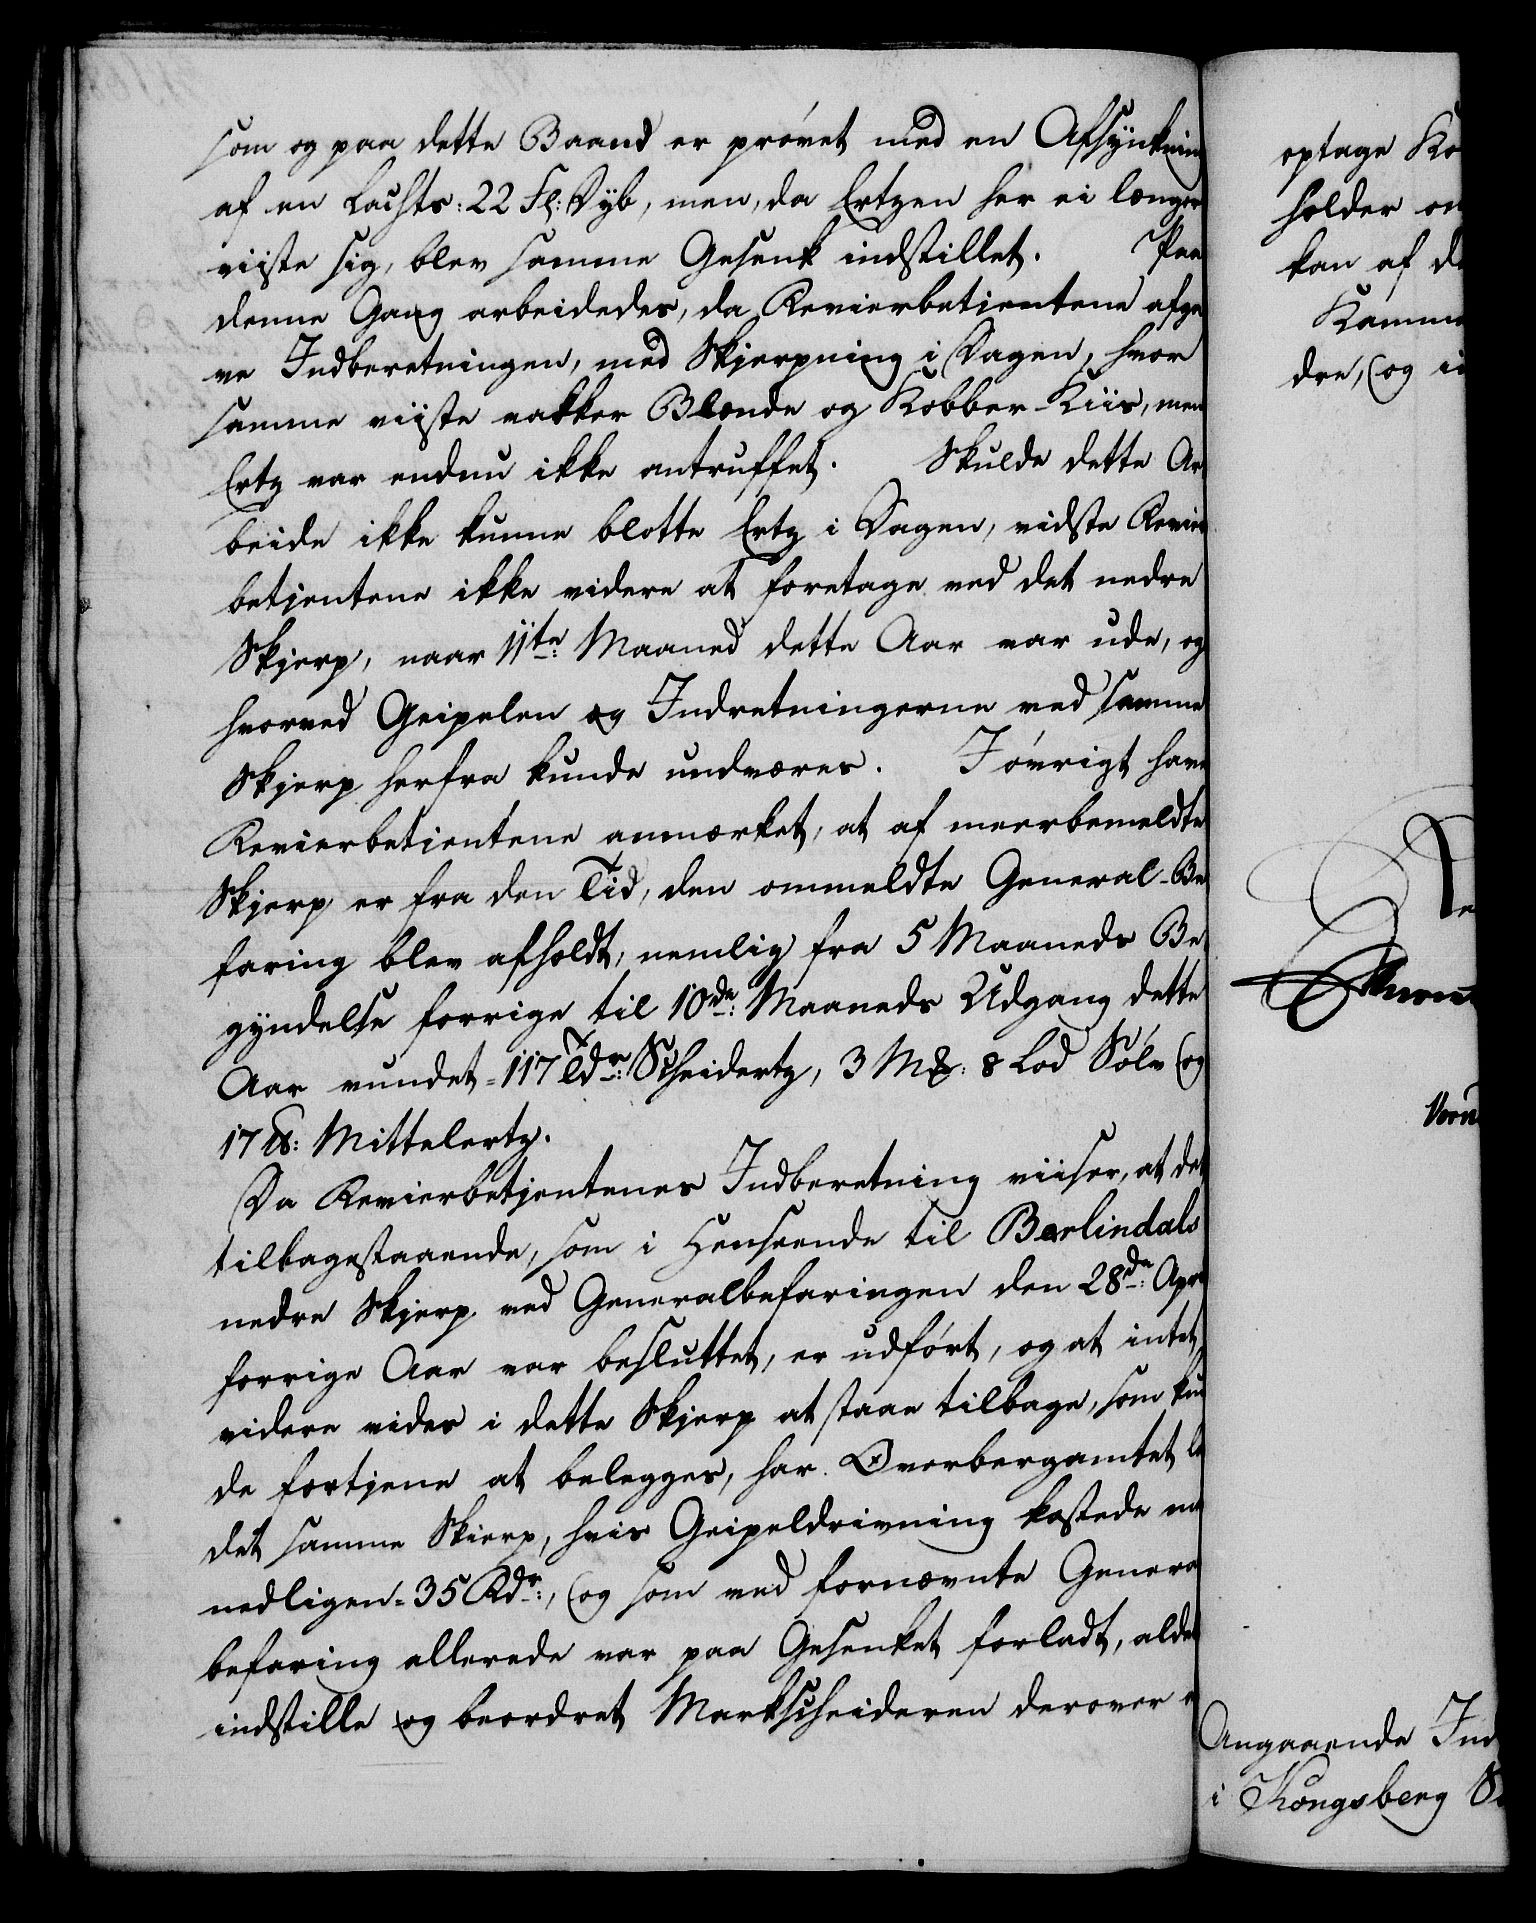 som og paa dette Baand er prövet med en Afsynkning
af en Lachts: 22 Fl: Dyb, men, da Ertzen her ei længer
viiste sig, blev samme Gesenk indstillet. Paa
denne Gang arbeidedes, da Revierbetientene afga
ve Indberetningen, med Skjerpning i Dagen, hvor
samme viiste vakker Blende og Kobber Kiis, men
Ertz var endnu ikke antruffet. Skulde dette Ar
beide ikke kunne blotte Ertz i Dagen, vidste Revier
betjentene ikke videre at foretage ved det nedre
Skjerp, naar 11te: Maaned dette Aar var ude, og
hvorved Geipelen og Indretningerne ved samme
Skjerp herfra kunde undværes. I övrigt have
Revierbetientene anmærket, at af meerbemeldte
Skjerp er fra den Tid, den ommeldte General-Be
faring blev afholdt, nemlig fra 5 Maaneds Be
gyndelse forrige til 10de: Maaneds Udgang dette
Aar vundet = 117 Tdr: Scheidertz, 3 Mk: 8 Lod Sölv og
17 ℔: Mittelertz.
Da Revierbetjentenes Indberetning viiser, at det
tilbagestaaende, som i Henseende til Berlindals
nedre Skjerp ved Generalbefaringen den 28de: Apr
forrige Aar var besluttet, er udfört, og at intet
videre vides i dette Skjerp at staae tilbage, som kun
de fortjene at belegges, har Overbergamtet la
det samme Skierp, hvis Geipeldrivning kostede ma
nedligen = 35 Rdr:, og som ved fornævnte General
befaring allerede var paa Gesenket forladt, aldel
indstille og beordret Markscheideren derover
optage Ko
holder
kan af de
Kamme
dre, og
Angaaende Ind
i Kongsberg